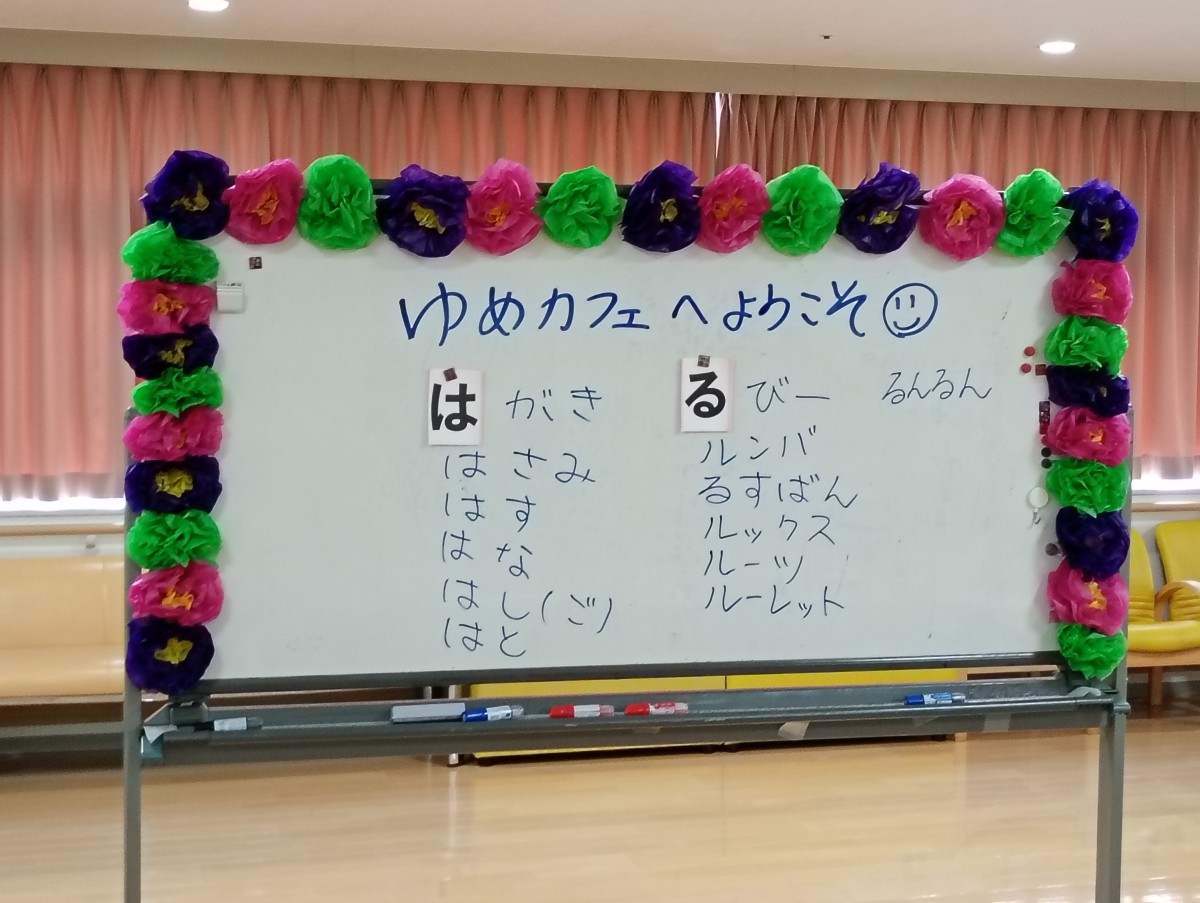 ゆめカフェへようこそ
はがき
はさみ
はす
はな
はし(ご)
はと
るびー
るんるん
ルンバ
るすばん
ルックス
ルーツ
ルーレット